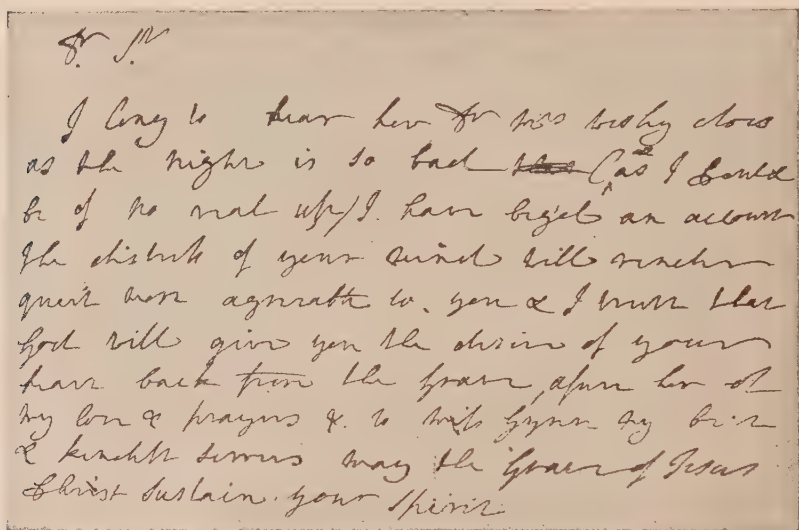 Dr Sr
I long to hear how Dr Mrs Wesley does
as the night is so bad (as I could
be of no real use) I have beg'd an account
the distress of your mind will render
quiet more agreeable to you & I trust that
God will give you the desire of your
heart back from the Grave, assure her of
my love & prayers & to Miss Gynn my best
& kindest services may the Grace of Jesus
Christ sustain your Spirit